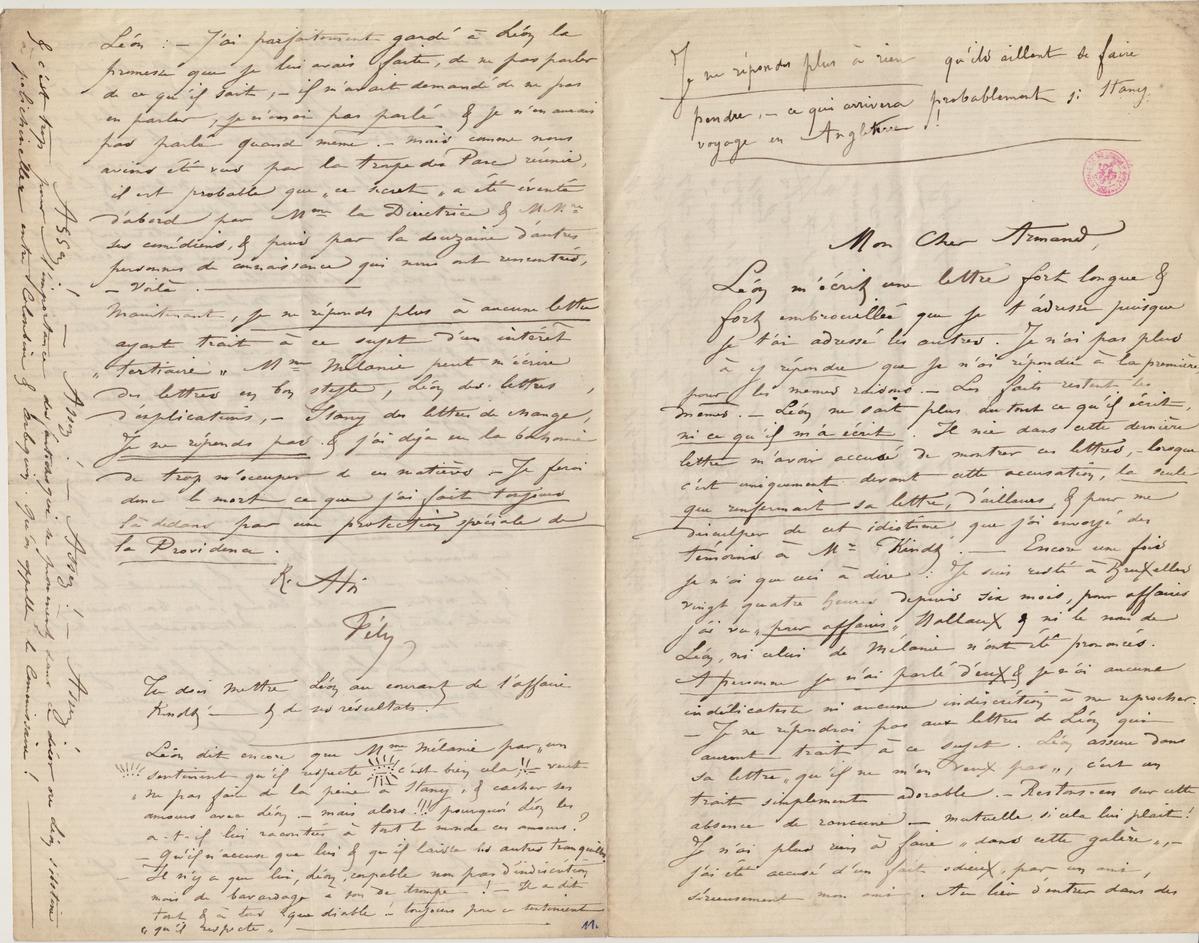 Je ne réponds plus à rien qu'ils aillent se faire
pendre, – ce qui arrivera probablement si Stany
voyage en Angleterre !
Mon Cher Armand,
Léon m'écrit une lettre fort longue &
fort embrouillée que je t'adresse puisque
je t'ai adressé les autres. Je n'ai pas plus
à y répondre que je n'ai répondu à la première
pour les mêmes raisons. – Les faits restent les
mêmes. – Léon ne sait plus du tout ce qu'il écrit,
ni ce qu'il m'a écrit. Il nie dans cette dernière
lettre m'avoir accusé de montrer ces lettres, – lorsque
c'est uniquement devant cette accusation, la seule
que renfermait sa lettre, d'ailleurs, & pour me
disculper de cet idiotisme que j'ai envoyé des
témoins à Mr Kindt. – Encore une fois
je n'ai que ceci à dire : Je suis resté à Bruxelles
vingt quatre heures depuis six mois, pour affaires
j'ai vu „pour affaires„ Nallaux & ni le nom de
Léon, ni celui de Mélanie n'ont été prononcés.
A personne je n'ai parlé d'eux & je n'ai aucune
indélicatesse ni aucune indiscrétion à me reprocher.
– Je ne répondrai pas aux lettres de Léon qui
auront trait à ce sujet. Léon assure dans
sa lettre „qu'il ne m'en veux pas„, c'est un
trait simplement adorable. – Restons-en sur cette
absence de rancune – mutuelle, si cela lui plait !
Je n'ai plus rien à faire „dans cette galère„, –
j'ai été accusé d'un fait odieux, par un ami,
sérieusement mon ami. Au lieu d'entrer dans des
Léon : – J'ai parfaitement gardé à Léon la
promesse que je lui avais faite, de ne pas parler
de ce qu'il sait, – il m'avait demandé de ne pas
en parler, je n'en ai pas parlé & je n'en aurais
pas parlé quand même. – mais comme nous
avions été vus par la troupe du Parc réunie,
il est probable que „ce secret„ a été éventé
d'abord par Mme la Directrice & MMrs
ses comédiens, & puis par la douzaine d'autres
personnes de connaissance qui nous ont rencontrés,
– Voilà.
Maintenant, je ne réponds plus à aucune lettre
ayant trait à ce sujet d'un intérêt
„tertiaire„ Mme Mélanie peut m'écrire
des lettres en bon style, Léon des lettres
d'explications, – Stany des lettres de change,
Je ne réponds pas & j'ai déjà eu la bonhomie
de trop m'occuper de ces matières – Je ferai
donc le mort ce que j'ai fait toujours
là dedans par une protection spéciale de
la Providence.
Fély
Tu dois mettre Léon au courant de l'affaire
Kindt – & de ses résultats !
Léon dit encore que Mme Mélanie par „un
sentiment qu'il respecte c'est bien cela !! veut
„ne pas fait de la peine à Stany, & cacher ses
amours avec Léon – mais alors !!! pourquoi Léon les
a-t-il lui racontés à tout le monde ces amours ?
– Qu'il n'accuse que lui & qu'il laisse les autres tranquilles
– Il n'y a que lui, Léon, coupable non pas d'indiscrétion
mais de bavardage à son de trompe ! – Il a dit
tout & à tous que diable ! – toujours pour ce sentiment
„qu'il respecte„
11.
Assez ! – Assez ! – Assez ! – Assez !
& c'est trop pour l'importance des qui se promènent dans ce décor où Léon s'obstine
à polichineller entre Colombine & Arlequin. Qu'on appelle le Commissaire !